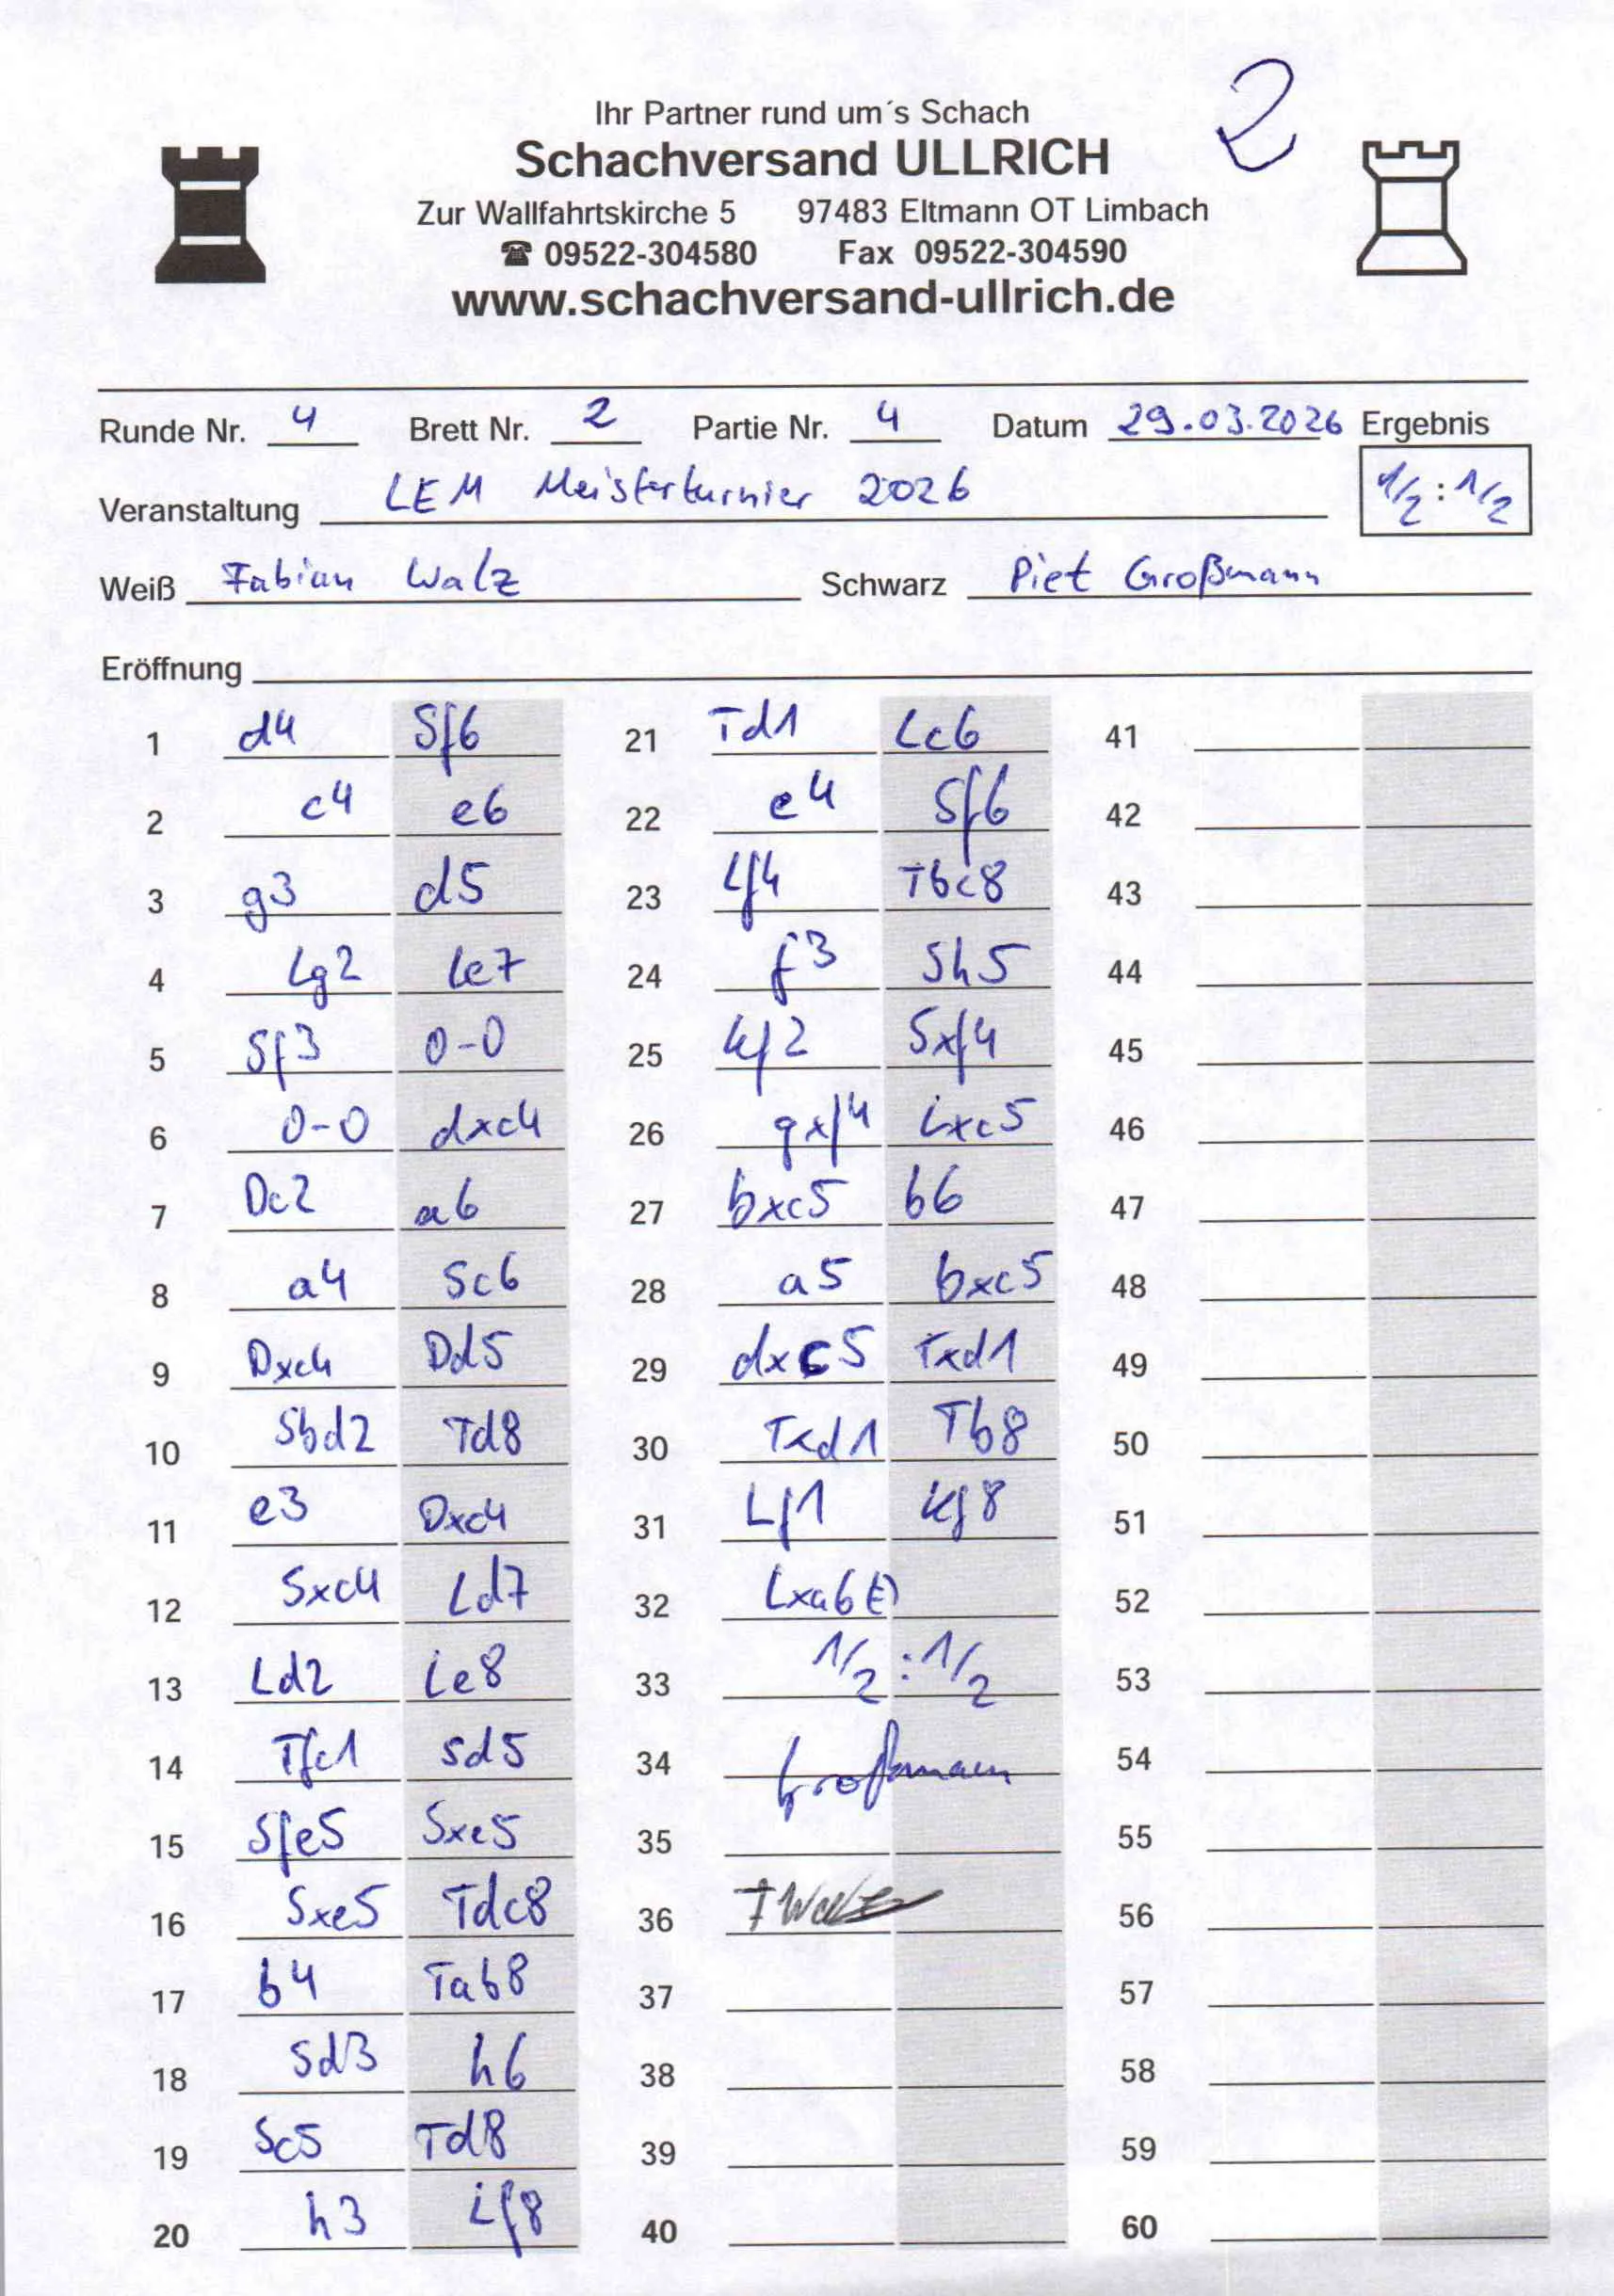 2
Ihr Partner rund um´s Schach
Schachversand ULLRICH
Zur Wallfahrtskirche 5 97483 Eltmann OT Limbach
☎ 09522-304580 Fax 09522-304590
www.schachversand-ullrich.de
Runde Nr. 4 Brett Nr. 2 Partie Nr. 4 Datum 29.03.2026 Ergebnis
Veranstaltung LEM Meisterturnier 2026 1/2:1/2
Weiß Fabian Walz Schwarz Piet Großmann
Eröffnung
1 d4 Sf6 21 Td1 Lc6 41
2 c4 e6 22 e4 Sf6 42
3 g3 d5 23 Lf4 Tbc8 43
4 Lg2 Le7 24 f3 Sh5 44
5 Sf3 0-0 25 Kf2 Sxf4 45
6 0-0 dxc4 26 gxf4 Lxc5 46
7 Dc2 a6 27 bxc5 b6 47
8 a4 Sc6 28 a5 bxc5 48
9 Dxc4 Dd5 29 dxc5 Txd1 49
10 Sbd2 Td8 30 Txd1 Tb8 50
11 e3 Dxc4 31 Lf1 Kf8 51
12 Sxc4 Ld7 32 Lxa6 (=) 52
13 Ld2 Le8 33 1/2:1/2 53
14 Tfc1 Sd5 34 Großmann 54
15 Sfe5 Sxe5 35 55
16 Sxe5 Tdc8 36 F Walz 56
17 b4 Tab8 37 57
18 Sd3 h6 38 58
19 Sc5 Td8 39 59
20 h3 Lf8 40 60